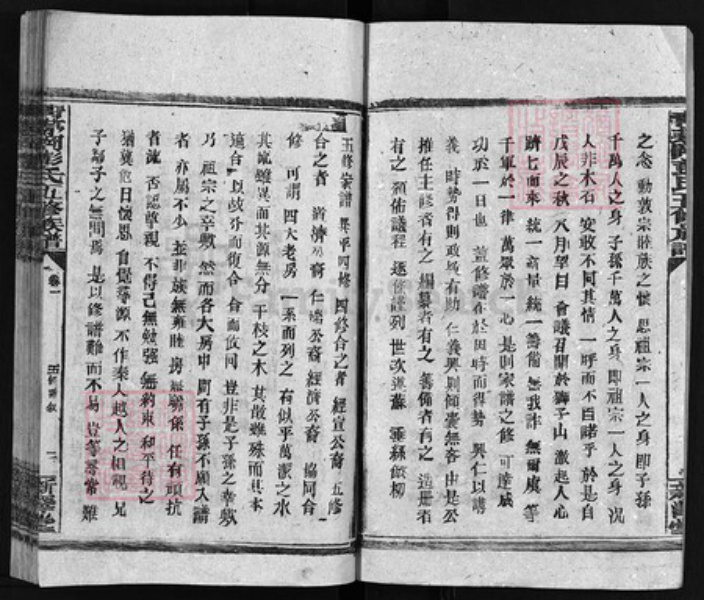 之念 動敦宗睦族之懷 思祖宗一人之身 即子孫
千萬人之身 子孫千萬人之身 即祖宗一人之身 况
人非木石 安敢不同其情 一呼而不百諾乎 於是自
戊辰之秋 八月望日 會議召開於獅子山 激起人心
躋七而來 統一商量 統一籌備 無我詐 無爾虞 等
千軍於一律 萬眾於一心 是則家譜之修 可達成
功於一日也 蓋修譜在於因時而得勢 興仁以講
義 時勢得則政城有助 仁義興則傾囊無吝 由是公
推任主修者有之 編纂者有之 籌備者有之 造册者
有之 頒佈議程 逐修謹列 世次遵蘇 垂絲倣柳
五修宗譜 異乎四修 四修合之者 經宣公裔 五修
合之者 濟公裔 仁 公裔 經濟公裔 協同合
修 可謂四大老房 一系而列之 有似乎萬派之水
其流雖異而其源無分 千枝之木 其散雖殊而其本
適合 以歧分而復合 合而攸同 豈非是子孫之幸歟
乃祖宗之幸歟 然而各大房中 間有子孫不願入譜
者 亦屬不少 並非族無雍睦 房無 係 任有頑抗
者流 否認尊親 不得已無勉强 無約束 和平待之
猶冀他日懷恩 自覺尋源 不作秦人越人之相視 兄
子弟子之無間焉 是以修譜難而不易 豈等尋常 難
彭氏五修族譜
卷一
五修譜敘
二